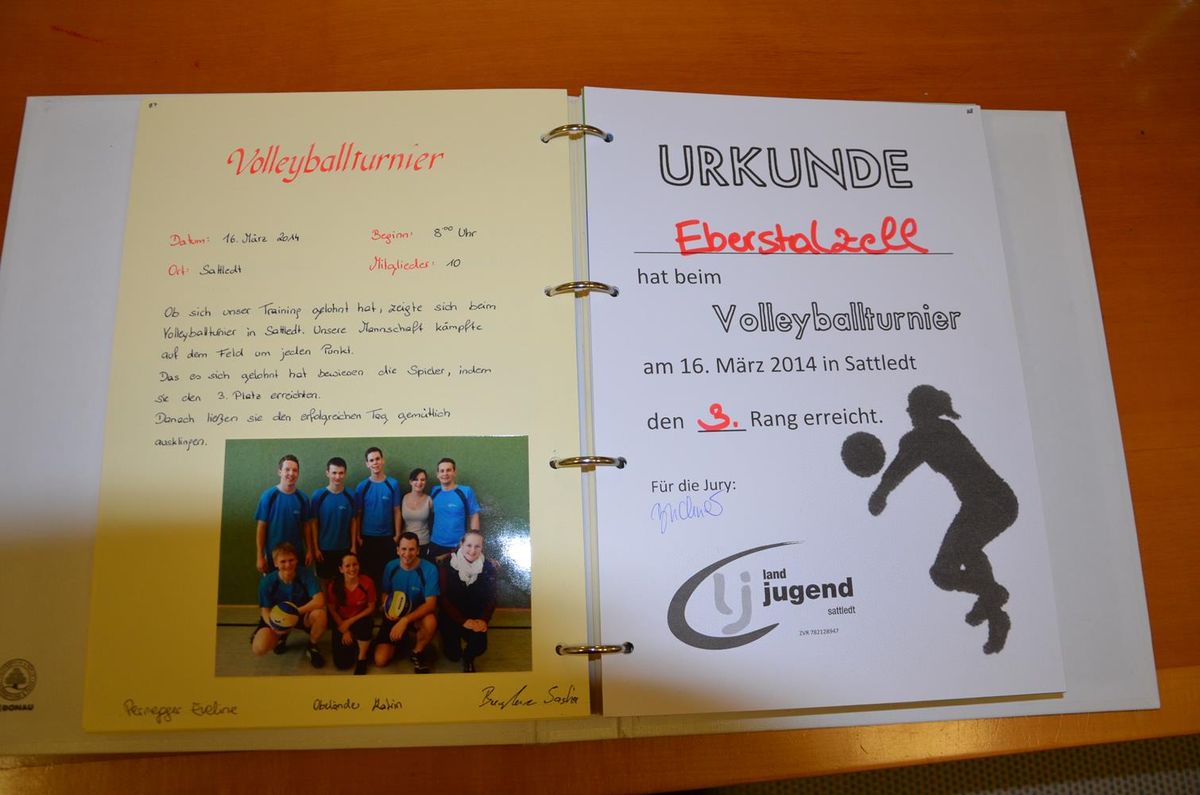 Volleyballturnier
Datum: 16. März 2014 Beginn: 8⁰⁰ Uhr
Ort: Sattledt Mitglieder: 10
Ob sich unser Training gelohnt hat, zeigte sich beim
Volleyballturnier in Sattledt. Unsere Mannschaft kämpfte
auf dem Feld um jeden Punkt.
Das es sich gelohnt hat bewiesen die Spieler, indem
sie den 3. Platz erreichten.
Danach ließen sie den erfolgreichen Tag gemütlich
ausklingen.
Pernegger Eveline
DONAU
URKUNDE
Eberstalzell
hat beim
Volleyballturnier
am 16. März 2014 in Sattledt
den 3. Rang erreicht.
Für die Jury:
lj land
jugend
sattledt
ZVR 782128947